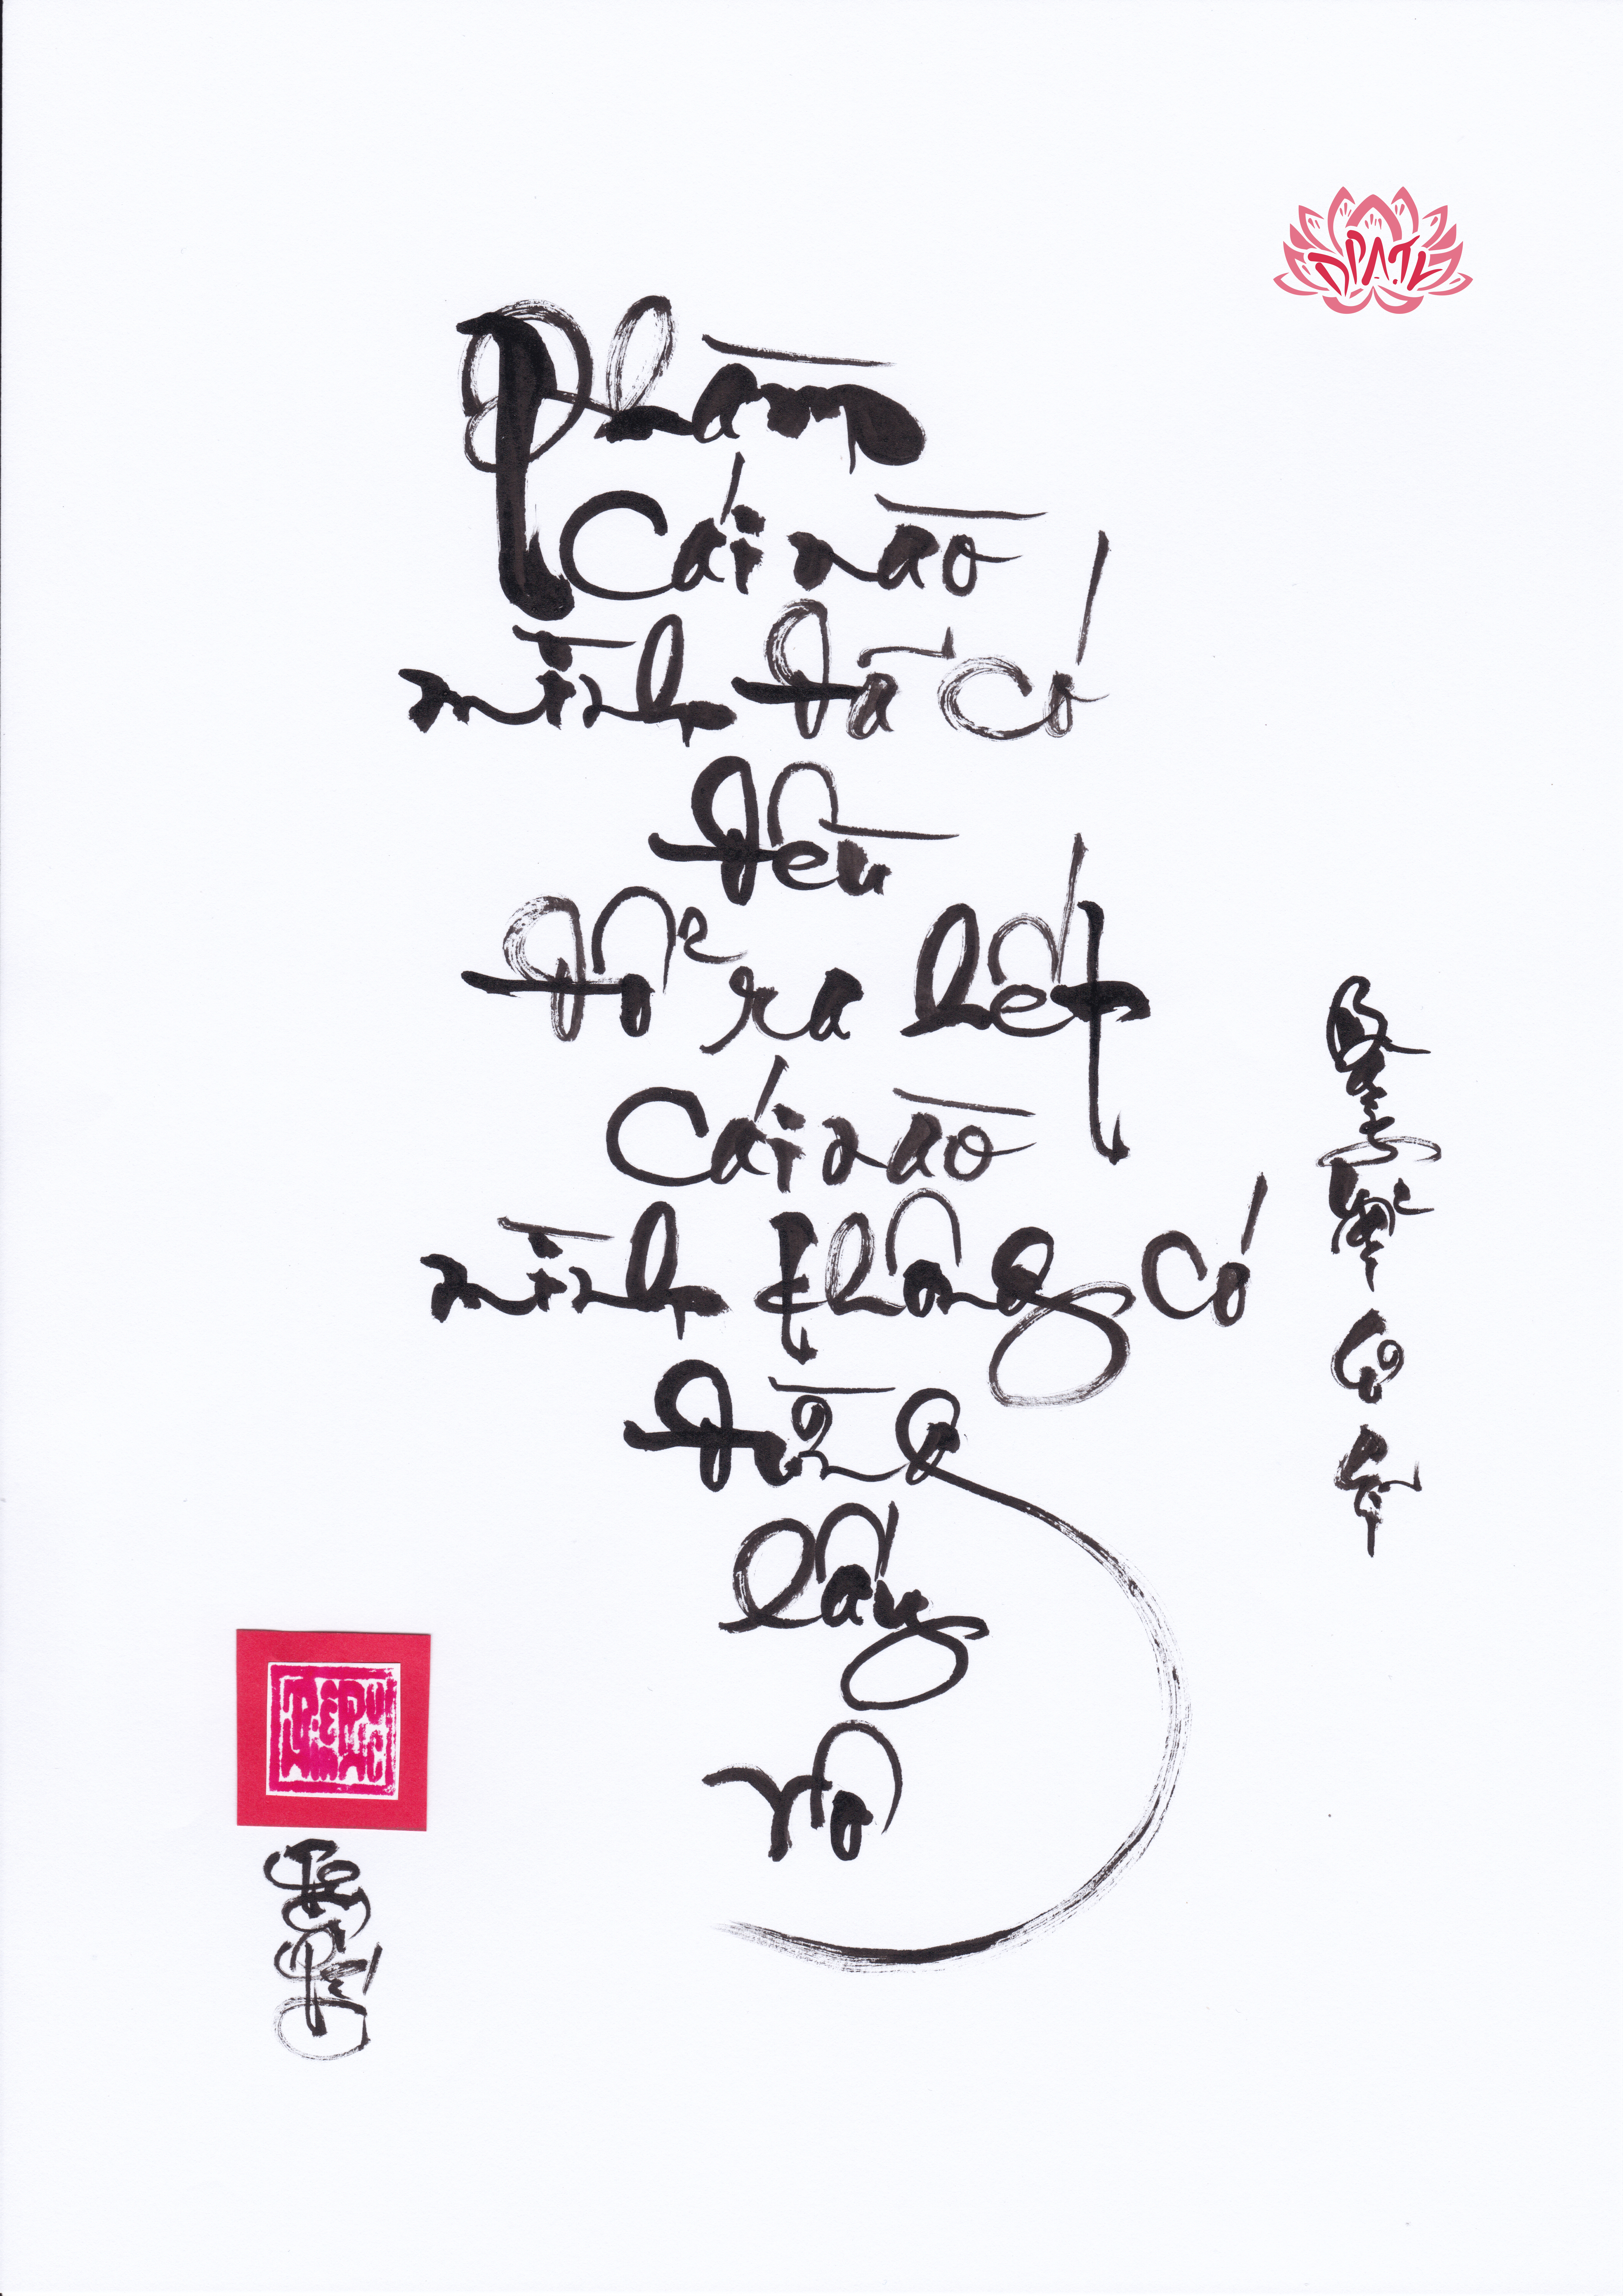 DPATL
Phàm
Cái nào
mình đã có
đều
đổ ra hết
Cái nào
mình không có
đừng
lấy
vô